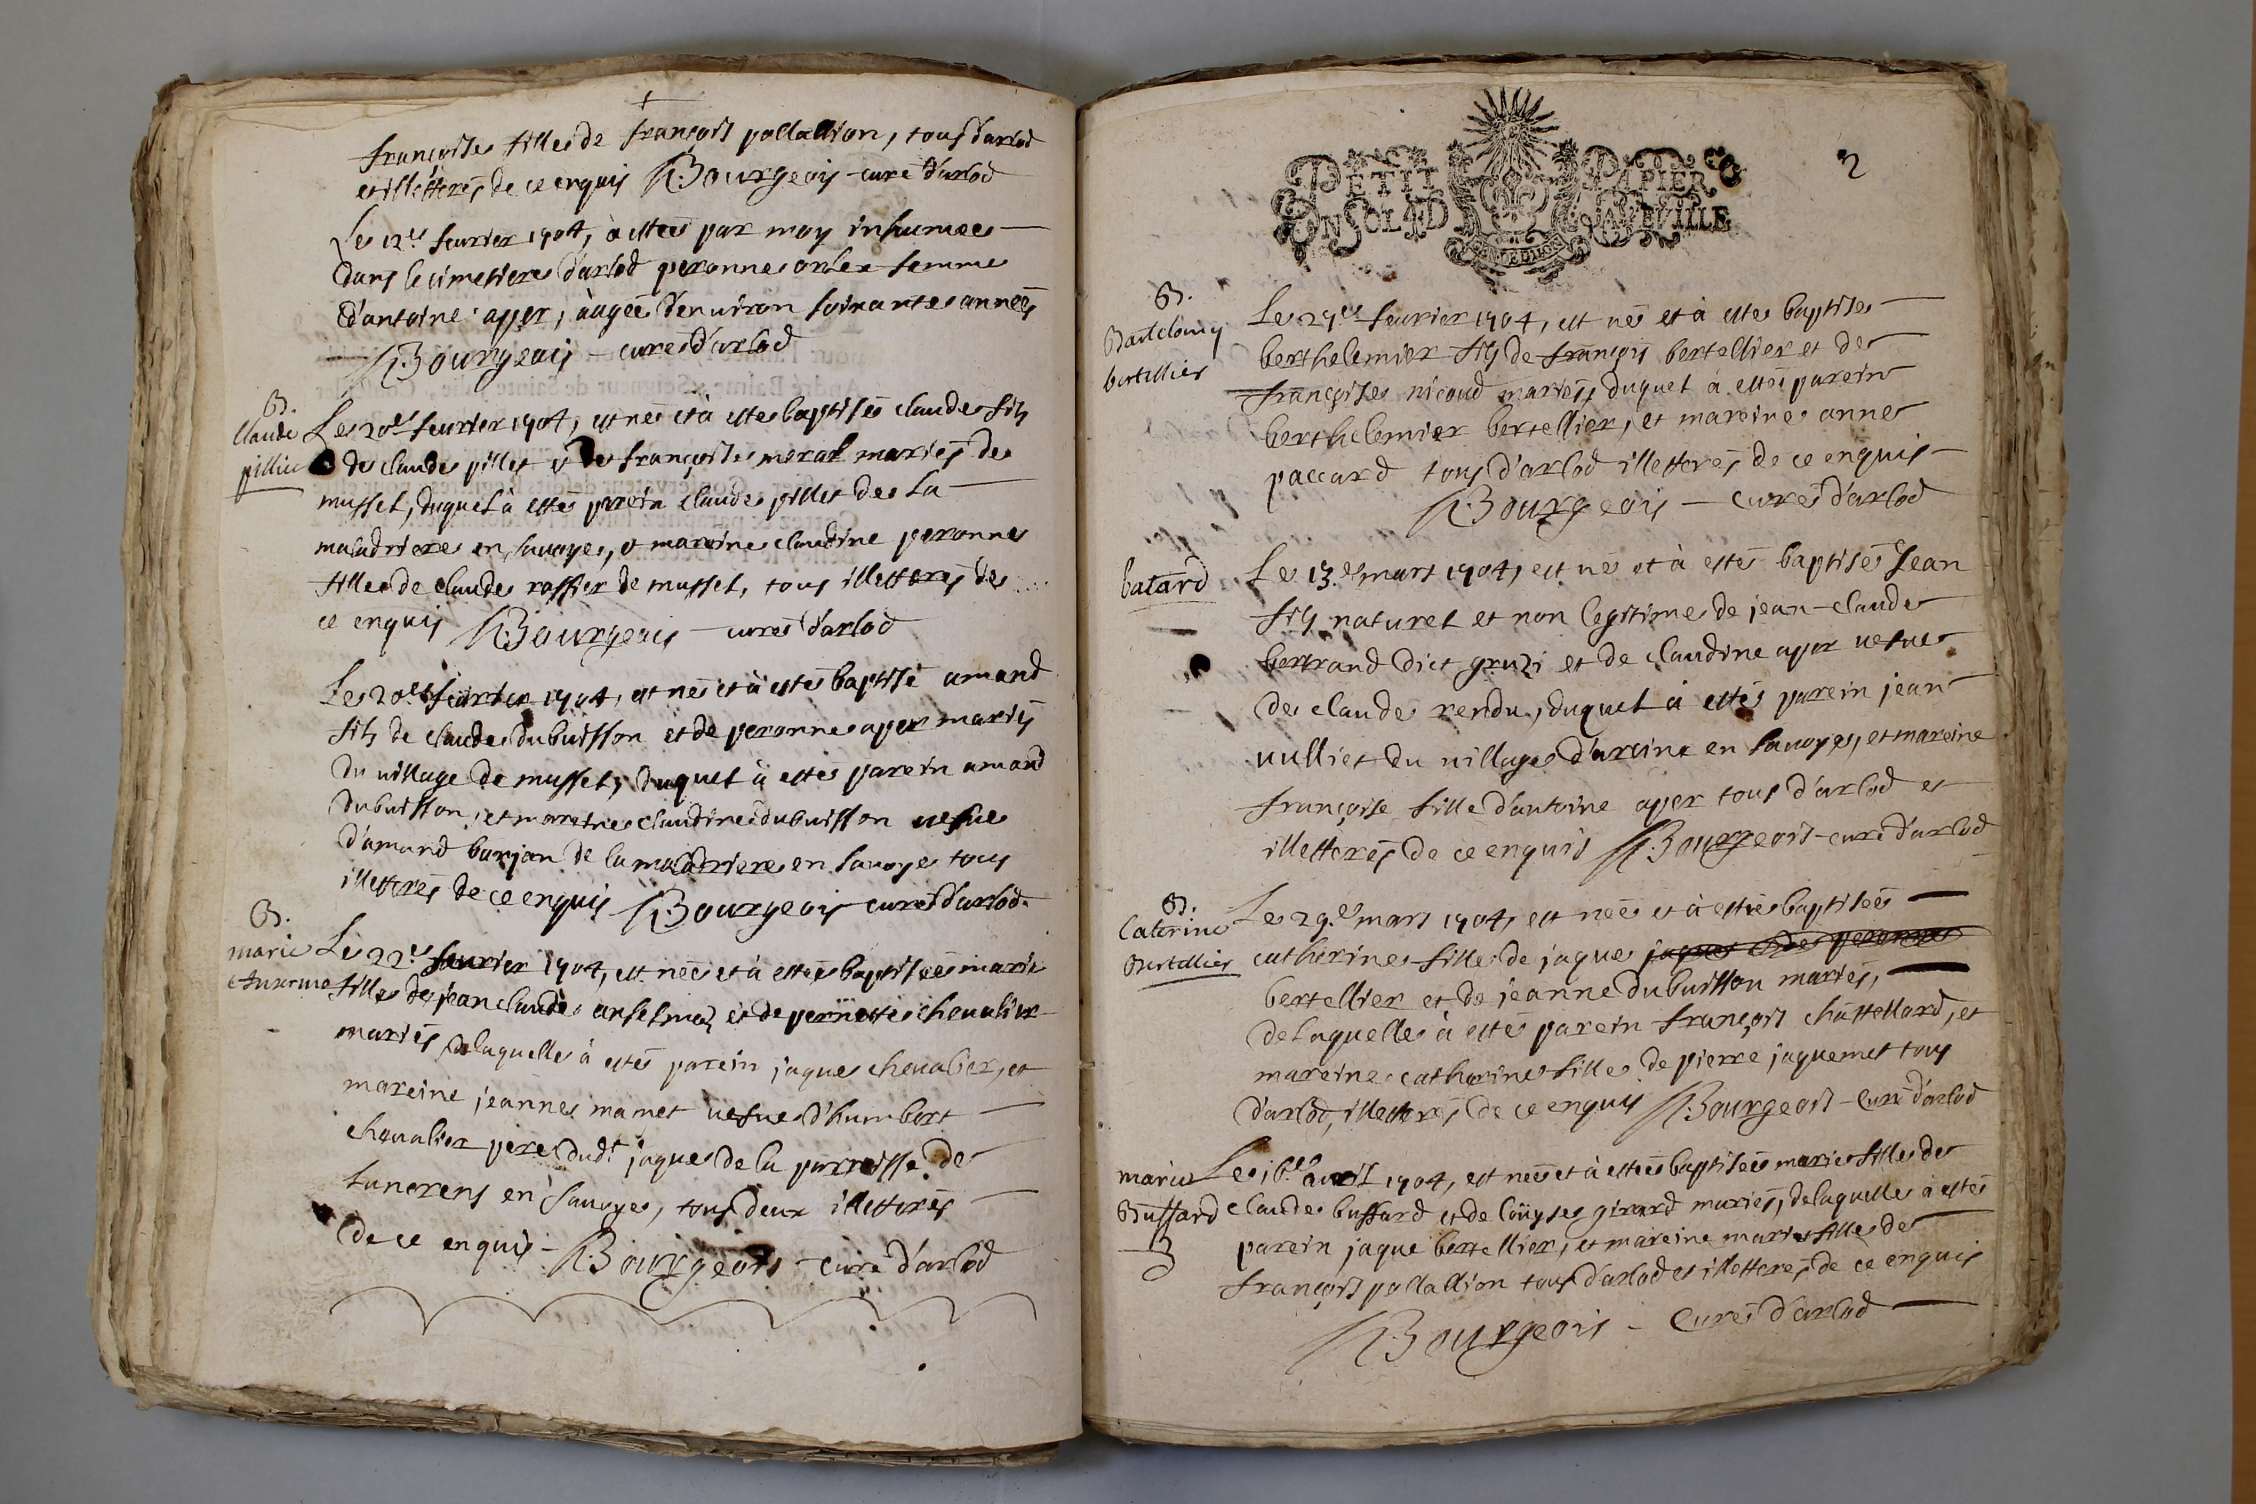 françoise fille de françois pollallion, tous d'arlod
et illetterés de ce enquis Bourgeois curé d'arlod
Le 12e feurier 1704, à estée par moy inhumée
dans le cimetiere d'arlod peronne orlex femme
d'antoine aper, àagée d'enuiron soixante années
Bourgeois curé d'arlod
B.
Claude
Le 20e feurier 1704, est né et à esté baptisé claude fils
de claude pillet et de françoise moral mariés de
mussel, duquel à esté parein claude pillet de la
maladriere en sauoye, et mareine claudine peronne
fille de claude rossier de mussel, tous illetterés de
ce enquis Bourgeois curé d'arlod
Le 20e feurier 1704, est né et à esté baptisé amand
fils de claude dubuisson et de peronne aper mariés
du uillage de mussel, duquel à esté parein amand
dubuisson, et mareine claudine dubuisson uefue
d'amand barjon de la maladriere en sauoye tous
illetterés de ce enquis Bourgeois curé d'arlod
B.
marie
Le 22e feurier 1704, est née et à estée baptisée marie
fille de jean claude anselmoz et de pernette cheualier
mariés delaquelle à esté parein jaque cheualier, et
mareine jeanne mamet uefue d'humbert
cheualier pere dudt jaque de la parroisse de
en sauoye, tous deux illetterés
de ce enquis Bourgeois curé d'arlod
2
PETIT PAPIER
UN SOL 4 D LA FEUILLE
B.
Bartelemy
bertellier
Le 27e feurier 1704, est né et à esté baptisé
berthelemier fils de françois bertellier et de
françoise nicoud mariés, duquel à esté parein
berthelemier bertellier, et mareine anne
paccard tous d'arlod illetterés de ce enquis
Bourgeois curé d'arlod
batard
Le 13e mars 1704, est né et à esté baptisé Jean
fils naturel et non legitime de jean-claude
bertrand dict gruzi et de claudine aper uefue
de claude rendu, duquel à esté parein jean
uulliet du uillage d'arcine en sauoye, et mareine
françoise fille d'antoine aper tous d'arlod et
illetterés de ce enquis Bourgeois curé d'arlod
B.
Caterine
Bertellier
Le 29e mars 1704, est née et à estée baptisée
catherine fille de jaque jaques et de peronne
bertellier et de jeanne dubuisson mariés,
delaquelle à esté parein françois châttellard, et
mareine catherine fille de pierre jaquemet tous
d'arlod, illetterés de ce enquis Bourgeois curé d'arlod
marie
Bussard
B
Le 16e auril 1704, est née et à estée baptisée marie fille de
claude bussard et de loüyse girard mariés, delaquelle à esté
parein jaque bertellier, et mareine marie fille de
françois pollallion tous d'arlod et illetterés de ce enquis
Bourgeois curé d'arlod